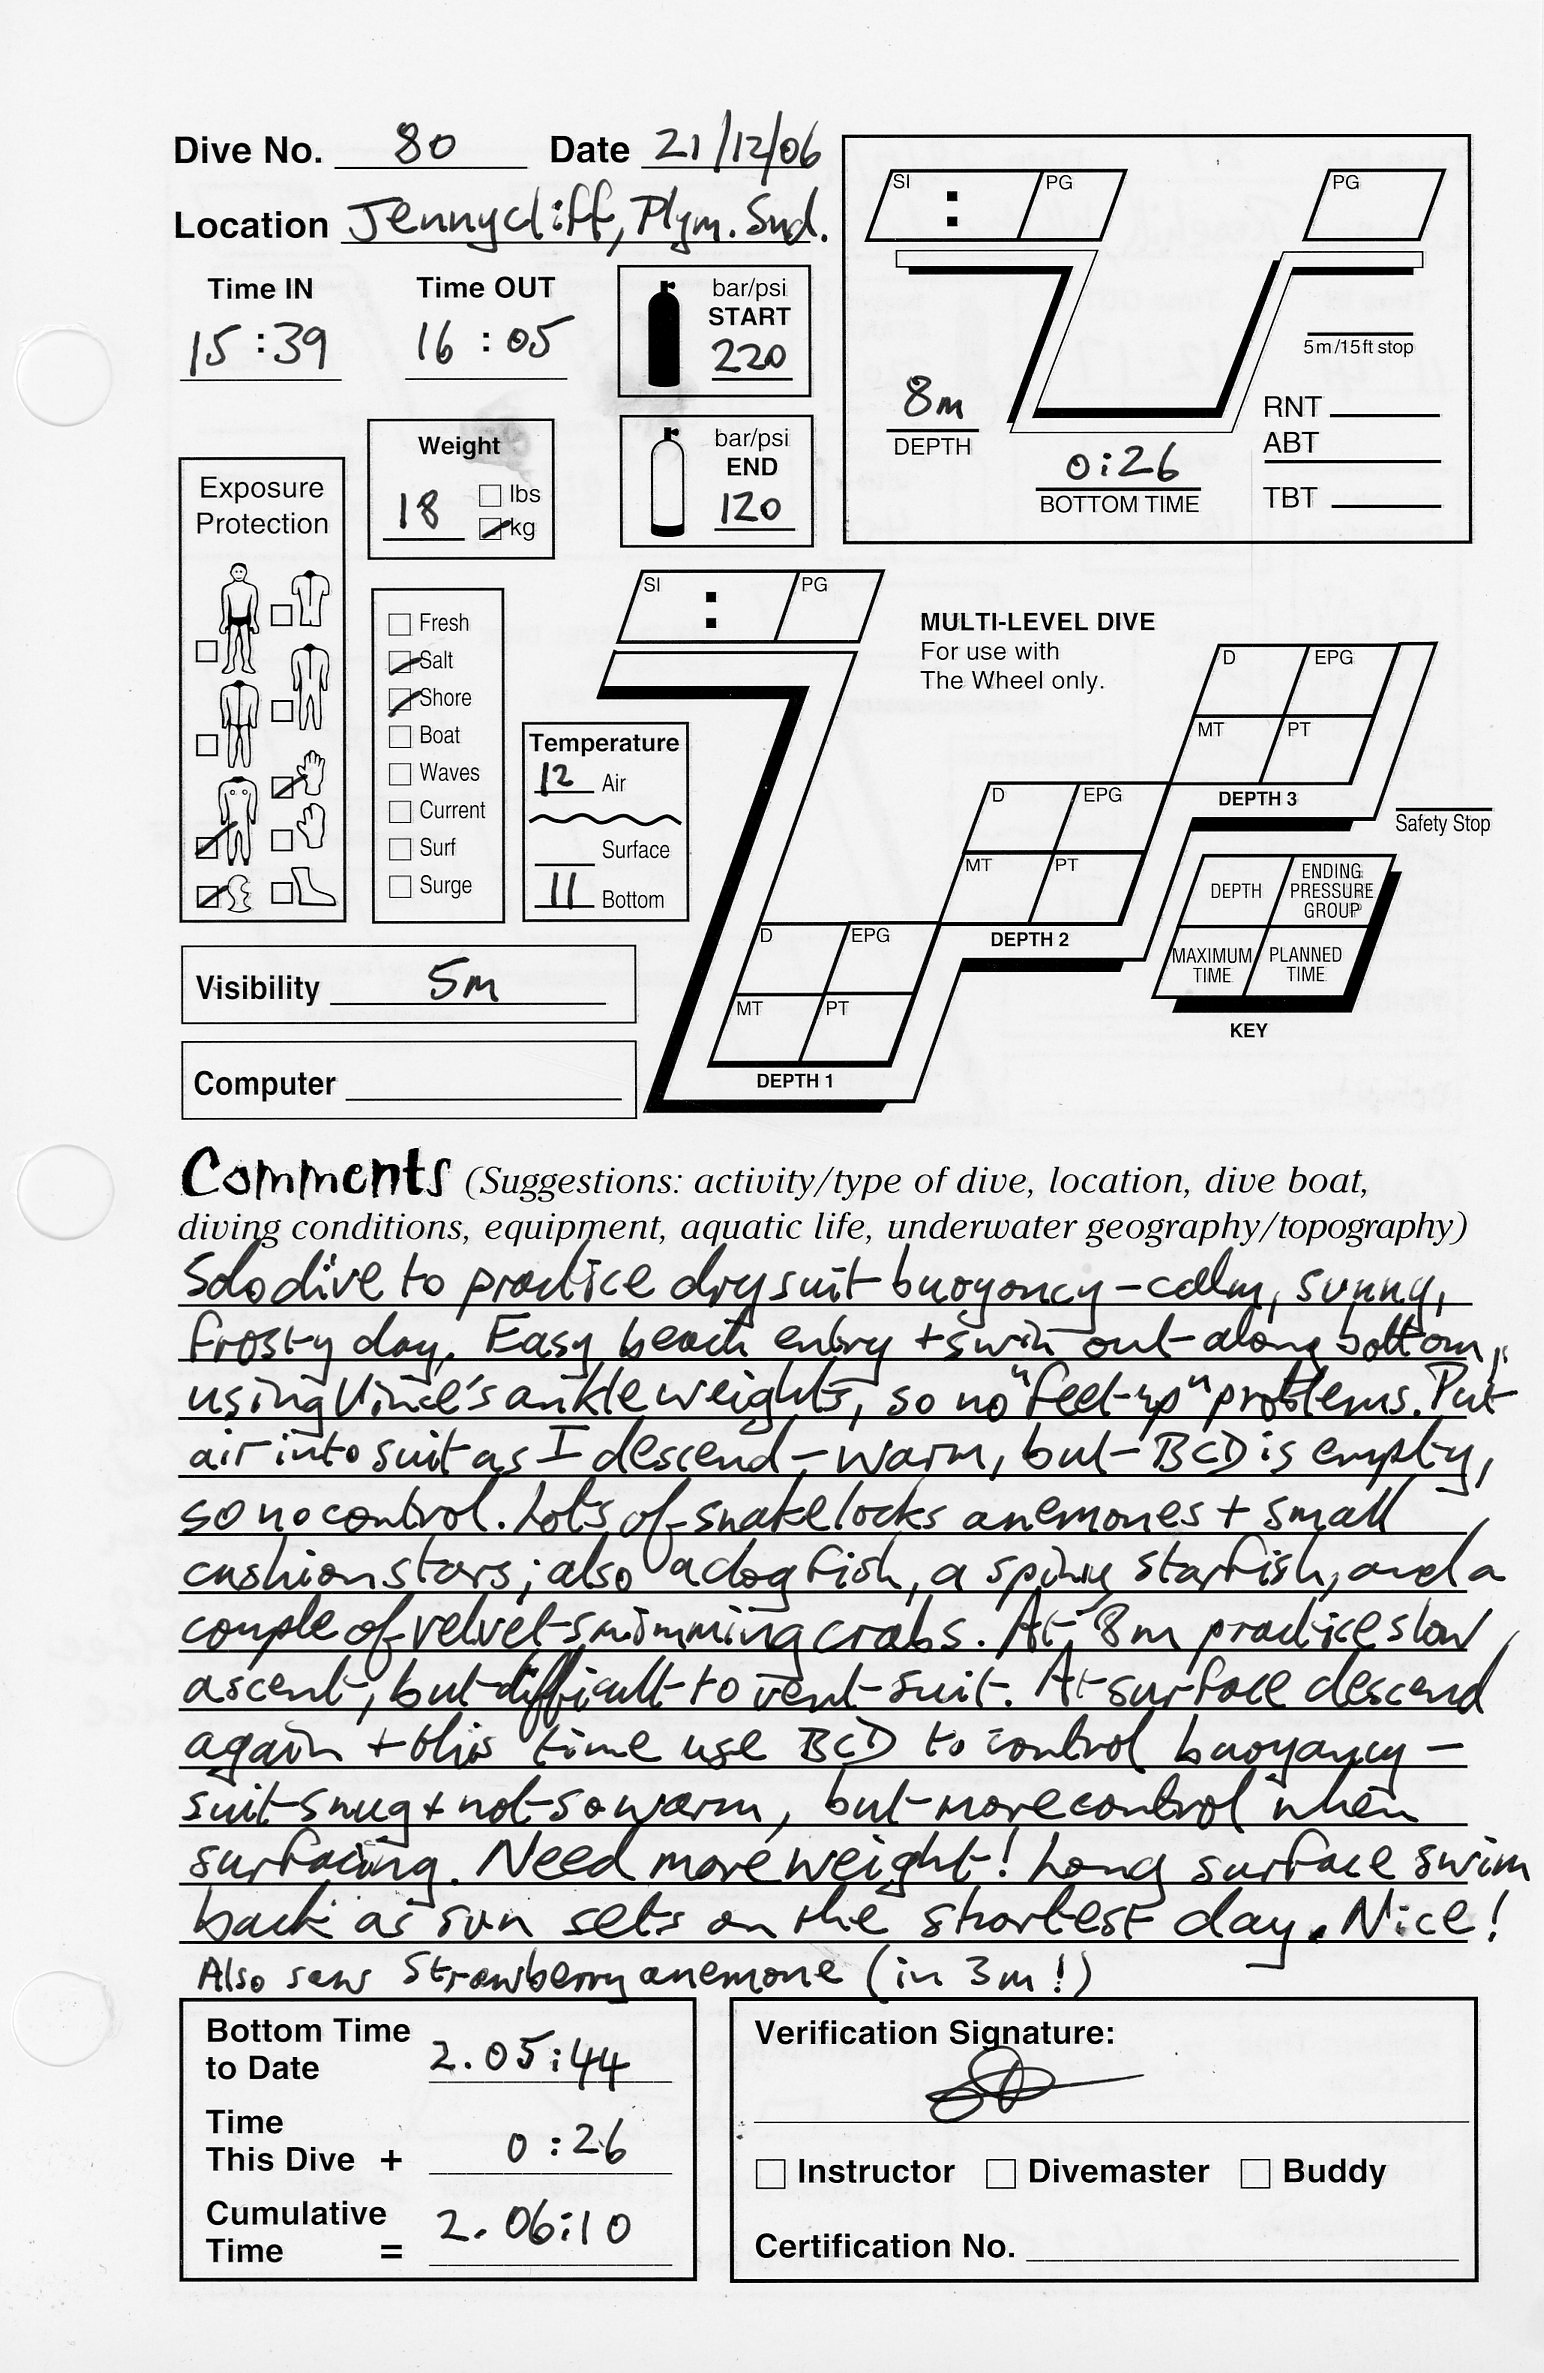 Dive No. 80 Date 21/12/06
Location Jennycliff, Plym. Snd.
Time IN
15:39
Time OUT
16:05
bar/psi
START
220
bar/psi
END
120
Weight
18
lbs
kg
SI : PG
PG
5m/15ft stop
8m
DEPTH
0:26
BOTTOM TIME
RNT
ABT
TBT
Exposure
Protection
Fresh
Salt
Shore
Boat
Waves
Current
Surf
Surge
Temperature
12 Air
Surface
11 Bottom
SI : PG
MULTI-LEVEL DIVE
For use with
The Wheel only.
D EPG
MT PT
DEPTH 3
D EPG
MT PT
DEPTH 2
D EPG
MT PT
DEPTH 1
Safety Stop
DEPTH
ENDING
PRESSURE
GROUP
MAXIMUM
TIME
PLANNED
TIME
KEY
Visibility 5m
Computer
Comments (Suggestions: activity/type of dive, location, dive boat,
diving conditions, equipment, aquatic life, underwater geography/topography)
Solo dive to practice drysuit buoyancy – calm, sunny,
frosty day. Easy beach entry + swim out along bottom,
using Vince's ankle weights, so no "feet-up" problems. Put
air into suit as I descend – warm, but BCD is empty,
so no control. Lots of snakelocks anemones + small
cushion stars; also a dogfish, a spiny starfish, and a
couple of velvet swimming crabs. At 8m practice slow
ascent, but difficult to vent suit. At surface descend
again + this time use BCD to control buoyancy –
suit snug + not so warm, but more control when
surfacing. Need more weight! Long surface swim
back as sun sets on the shortest day. Nice!
Also saw Strawberry anemone (in 3m!)
Bottom Time
to Date 2.05:44
Time
This Dive + 0:26
Cumulative
Time = 2.06:10
Verification Signature:
Instructor Divemaster Buddy
Certification No.